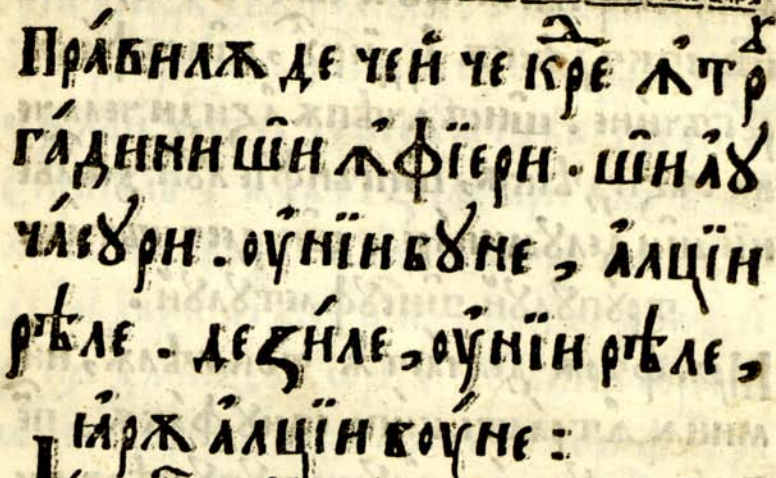 Пра́вилѫ де чей че крⷣе ꙟ трꙋ
га́дини ши̑н ꙟфїери . ши̑н а҆ꙋ
ча́сꙋри . ᲂу҆нїи бꙋне , а҆лцїи
рѣле . де ꙁи́ле , ᲂу҆нїи рѣле ,
ꙗ́рѫ а҆лцїи бᲂу́не :